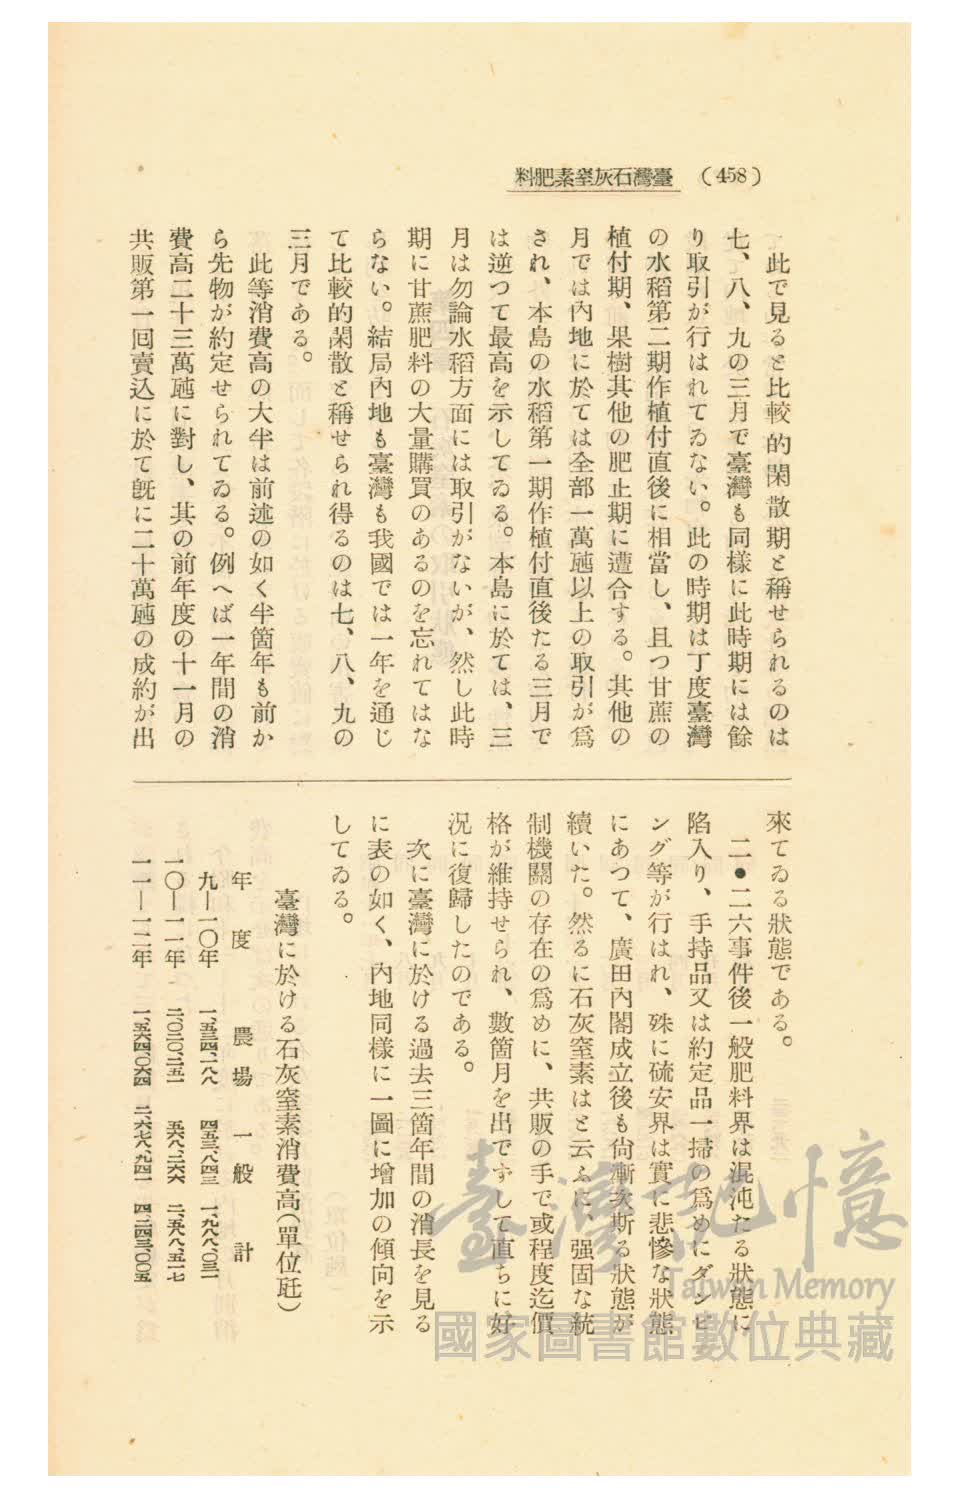 (458) 臺灣石灰窒素肥料
此で見ると比較的閑散期と稱せられるのは
七、八、九の三月で臺灣も同樣に此時期には餘
り取引が行はれてゐない。此の時期は丁度臺灣
の水稻第二期作植付直後に相當し、且つ甘蔗の
植付期、果樹其他の肥止期に遭合する。其他の
月では內地に於ては全部一萬瓲以上の取引が爲
され、本島の水稻第一期作植付直後たる三月で
は逆つて最高を示してゐる。本島に於ては、三
月は勿論水稻方面には取引がないが、然し此時
期に甘蔗肥料の大量購買のあるのを忘れてはな
らない。結局內地も臺灣も我國では一年を通じ
て比較的閑散と稱せられ得るのは七、八、九の
三月である。
此等消費高の大半は前述の如く半箇年も前か
ら先物が約定せられてゐる。例へば一年間の消
費高二十三萬瓲に對し、其の前年度の十一月の
共販第一囘賣込に於て旣に二十萬瓲の成約が出
來てゐる狀態である。
二・二六事件後一般肥料界は混沌たる狀態に
陷入り、手持品又は約定品一掃の爲めにダンピ
ング等が行はれ、殊に硫安界は實に悲慘な狀態
にあつて、廣田內閣成立後も尙漸次斯る狀態が
續いた。然るに石灰窒素はと云ふに、强固な統
制機關の存在の爲めに、共販の手で或程度迄價
格が維持せられ、數箇月を出でずして直ちに好
況に復歸したのである。
次に臺灣に於ける過去三箇年間の消長を見る
に表の如く、內地同樣に一圖に增加の傾向を示
してゐる。
臺灣に於ける石灰窒素消費高(單位瓩)
年度 農場 一般 計
九—一〇年 一、五三四、一八八 四五三、八四三 一、九八八、〇三一
一〇—一一年 二、〇二〇、二五一 五六八、二六六 二、五八八、五一七
一一—一二年 一、五六四、〇六四 二、六七八、九四一 四、二四三、〇〇五
臺灣記憶
Taiwan Memory
國家圖書館數位典藏